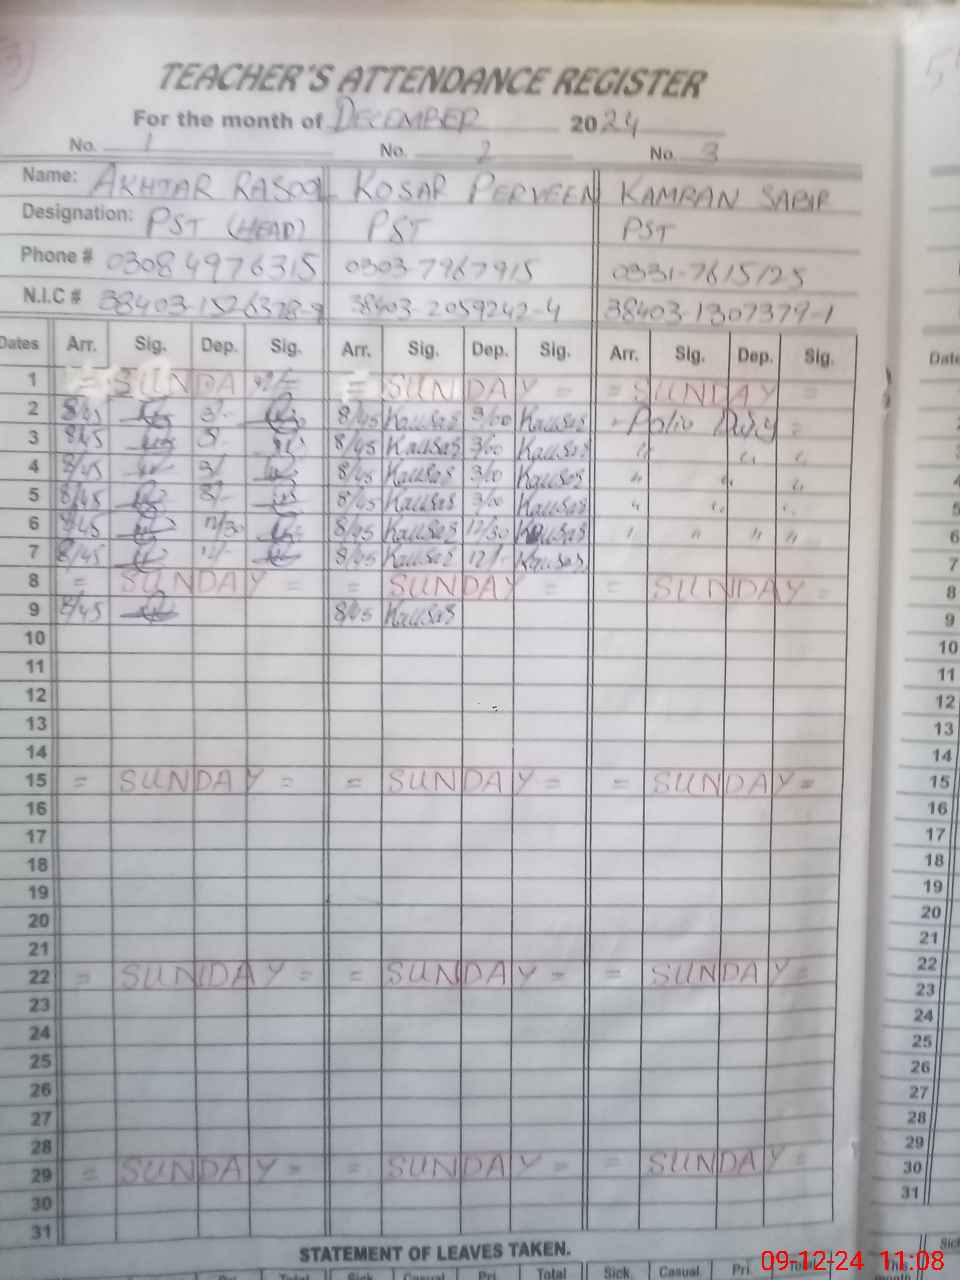 TEACHER'S ATTENDANCE REGISTER
For the month of DECEMBER 2024
No. 1 No. 2 No. 3
Name: AKHTAR RASOOL KOSAR PERVEEN KAMRAN SABIR
Designation: PST (HEAD) PST PST
Phone # 03084976315 0303-7967915 0331-7615125
N.I.C # 38403-1526378-9 38403-2059242-4 38403-1307379-1
Dates Arr. Sig. Dep. Sig. Arr. Sig. Dep. Sig. Arr. Sig. Dep. Sig. Date
1 = SUNDAY = = SUNDAY = = SUNDAY =
2 8/45 3/- 8/45 Kausar 3/00 Kausar - Polio Duty =
3 8/45 3/- 8/45 Kausar 3/00 Kausar " " "
4 8/45 3/ 8/45 Kausar 3/00 Kausar " " "
5 8/45 3/- 8/45 Kausar 3/00 Kausar " " "
6 8/45 12/30 8/45 Kausar 12/30 Kausar " " " "
7 8/45 12/- 8/45 Kausar 12/- Kausar
8 = SUNDAY = = SUNDAY = = SUNDAY =
9 8/45 8/45 Kausar
10
11
12
13
14
15 = SUNDAY = = SUNDAY = = SUNDAY =
16
17
18
19
20
21
22 = SUNDAY = = SUNDAY = = SUNDAY =
23
24
25
26
27
28
29 = SUNDAY = = SUNDAY = = SUNDAY =
30
31
STATEMENT OF LEAVES TAKEN.
Sick Casual Pri. Total Sick Casual Pri. Total This
5
6
7
8
9
10
11
12
13
14
15
16
17
18
19
20
21
22
23
24
25
26
27
28
29
30
31
Sick
09-12-24 11:08